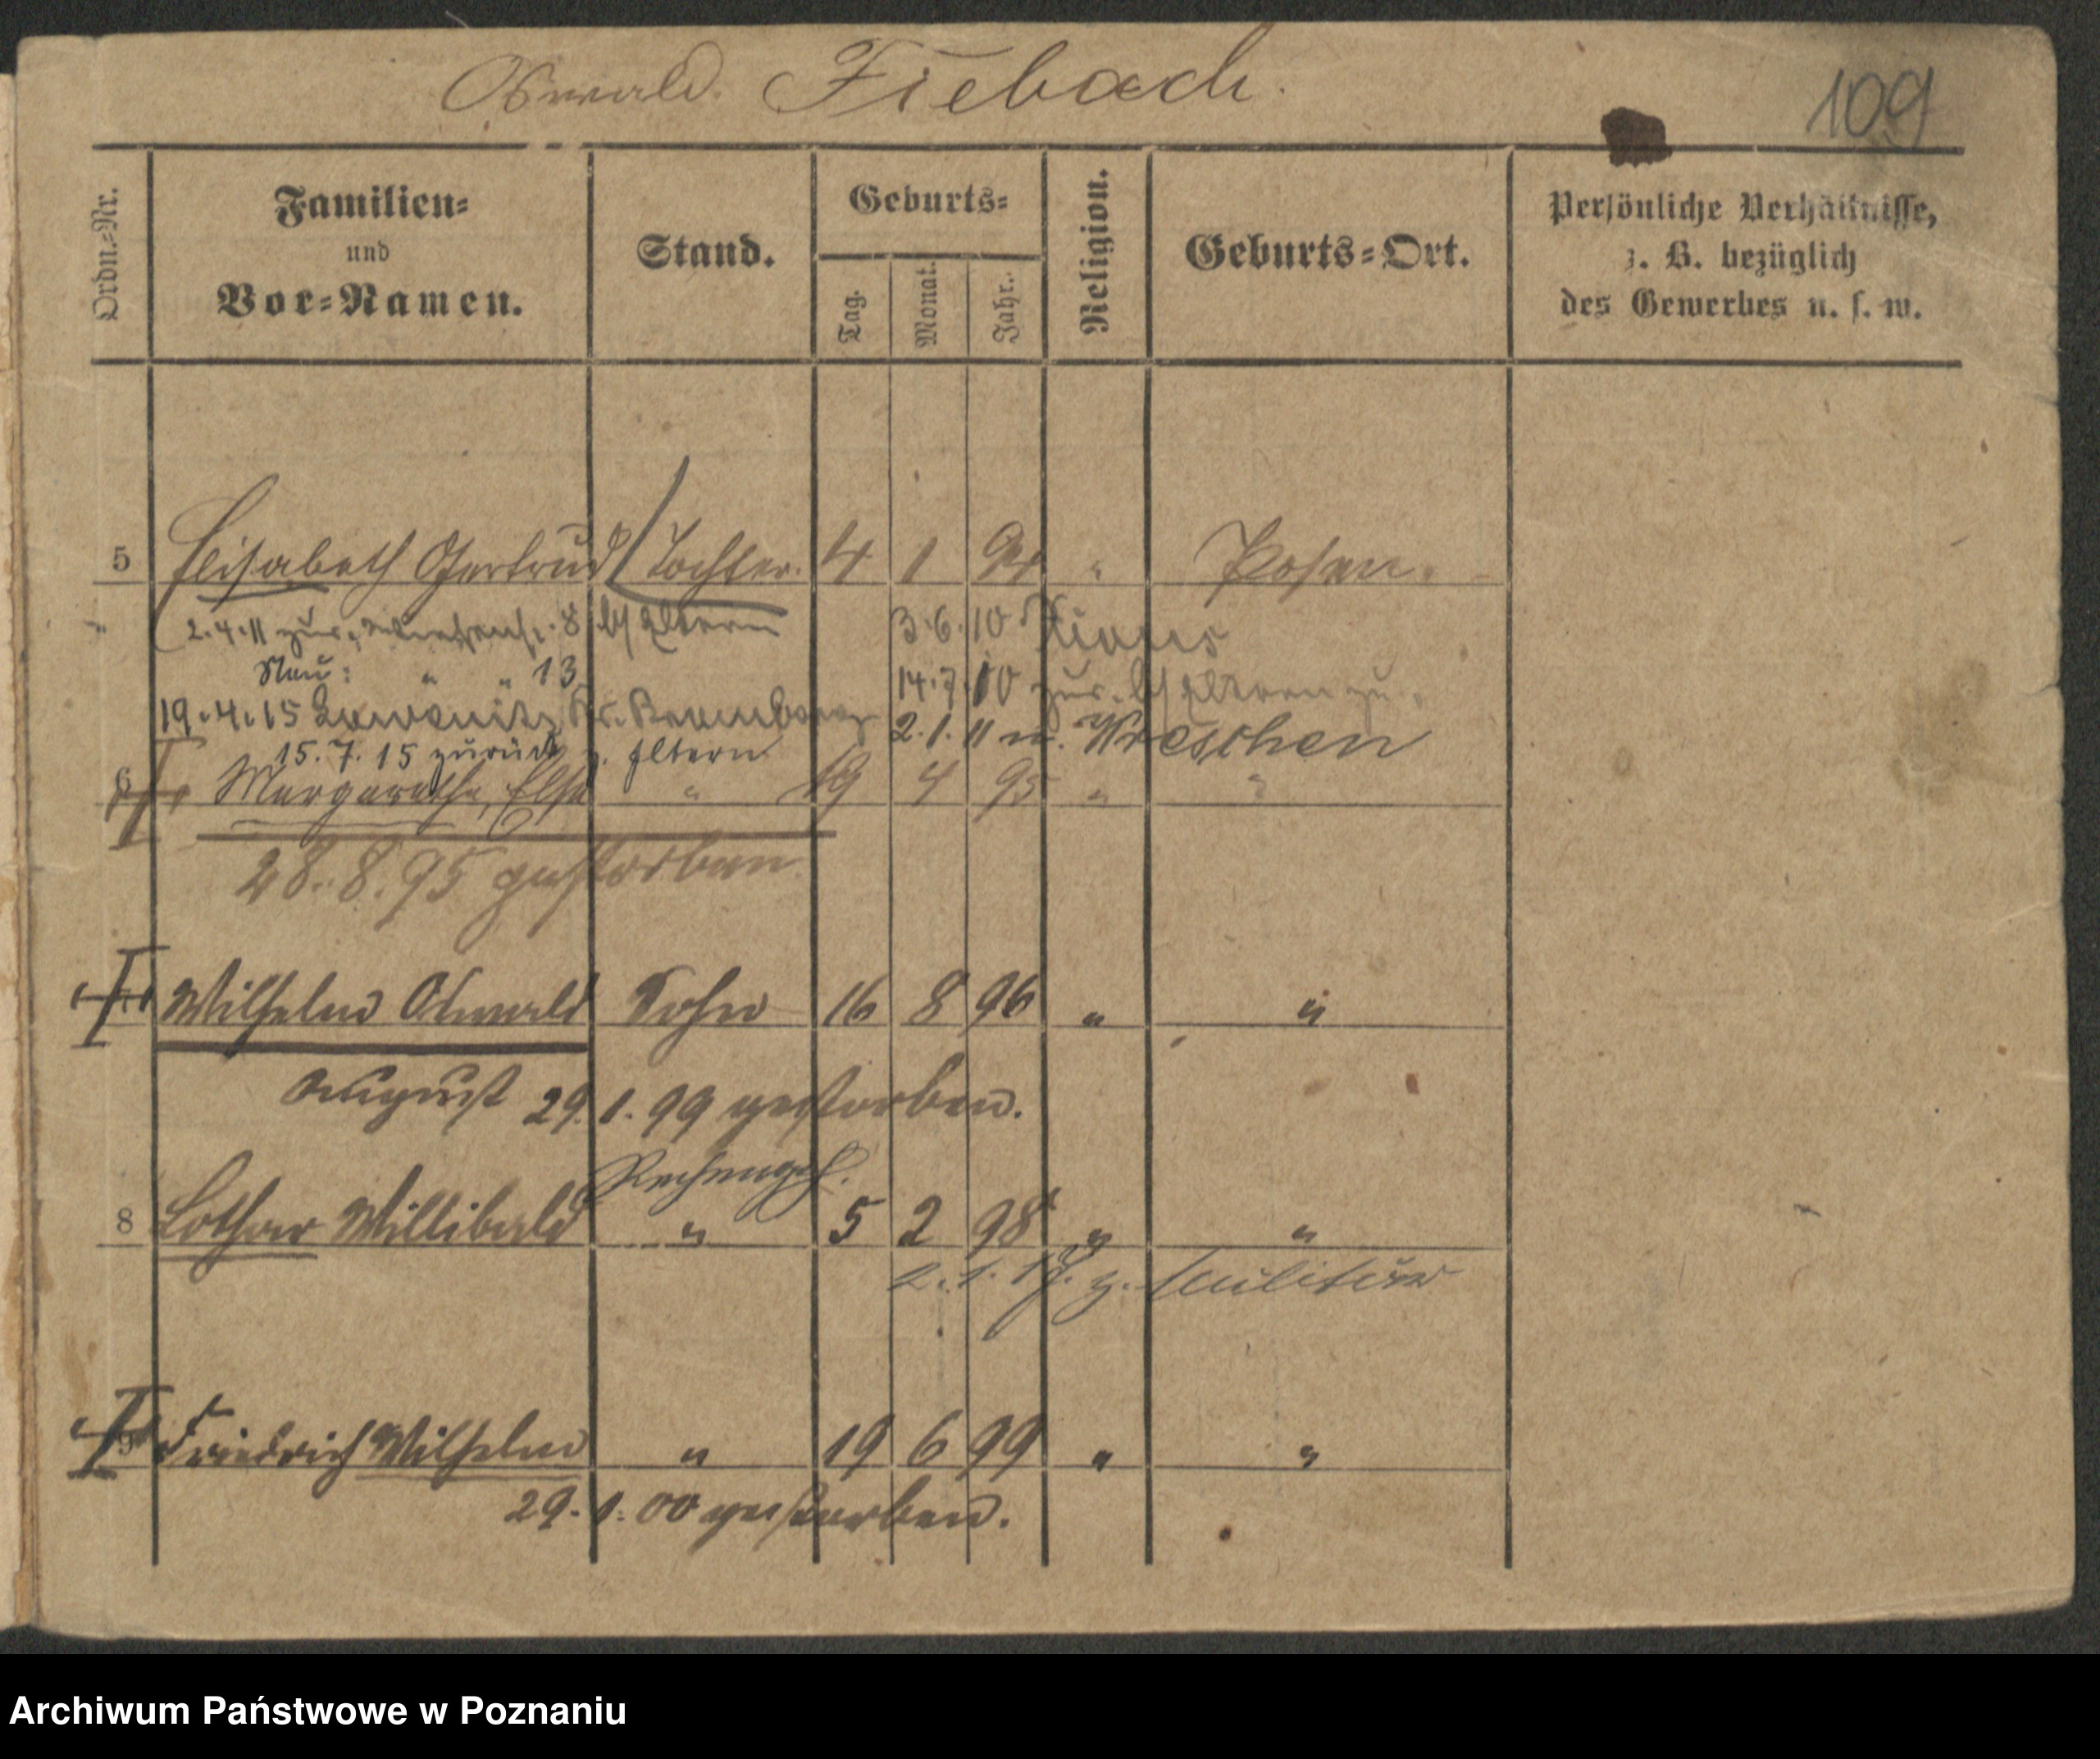 Oswald Fiebach.
109
Ordn.=Nr.
Familien=
und
Vor=Namen.
Stand.
Geburts=
Tag.
Monat.
Jahr.
Religion.
Geburts=Ort.
Persönliche Verhältnisse,
z. B. bezüglich
des Gewerbes u. s. w.
5 Elisabeth Gertrud Tochter. 4 1 94 " Posen.
2.4.11 zur. 8 b/ Eltern
3.6.10
Neu: " " 13
14.7.10 zur. b/ Eltern zu
19.4.15
2.1.11 n. Wreschen
15.7.15 zurück z. Eltern
6 Margarethe, Else " 19 4 95 " "
28.8.95 gestorben.
Wilhelm Oswald Sohn 16 8 96 " "
August 29.1.99 gestorben.
8 Lothar Willibald " 5 2 98 " "
2.1.17. z. Militär
9 Friedrich Wilhelm " 19 6 99 " "
29.1.00 gestorben.
Archiwum Państwowe w Poznaniu